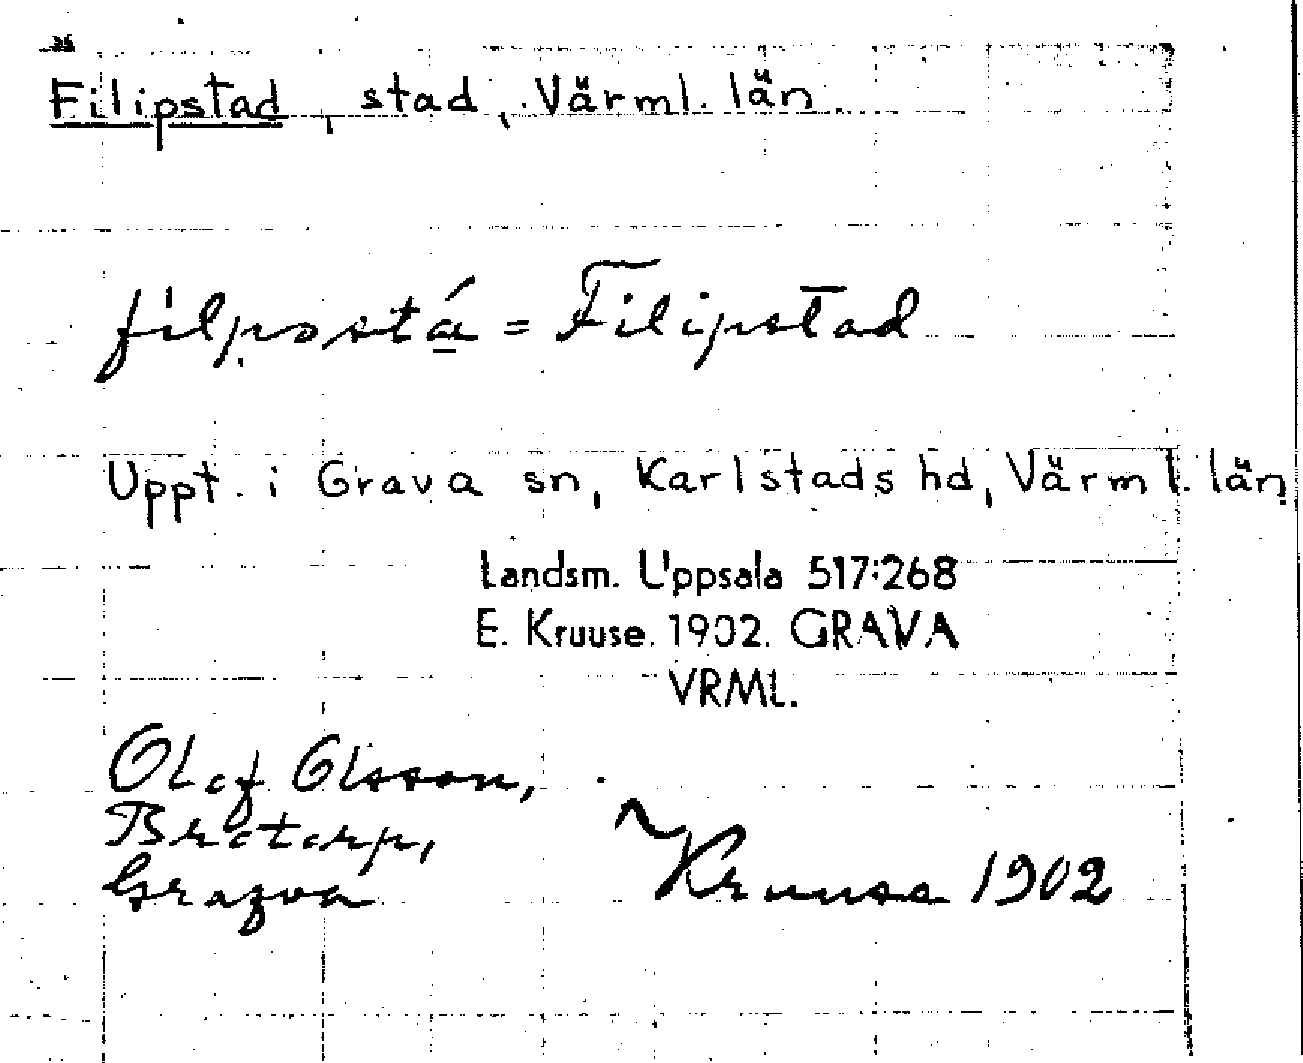 Filipstad, stad, Värml. län
filpostá = Filipstad
Uppt. i Grava sn, Karlstads hd, Värml. län
Landsm. Uppsala 517:268
E. Kruuse. 1902. GRAVA
VRML.
Olof Olsson,
Brotorp,
Grafva
Kruuse 1902